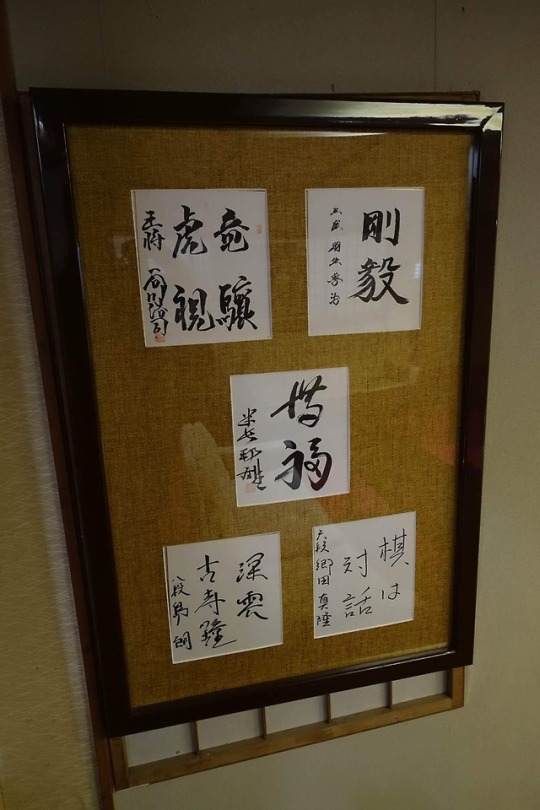 剛毅
五段 羽生善治
竜驤
虎視
王将 谷川浩司
惜福
米長邦雄
棋は
対話
六段 郷田真隆
深雲
古寺鐘
八段 島朗